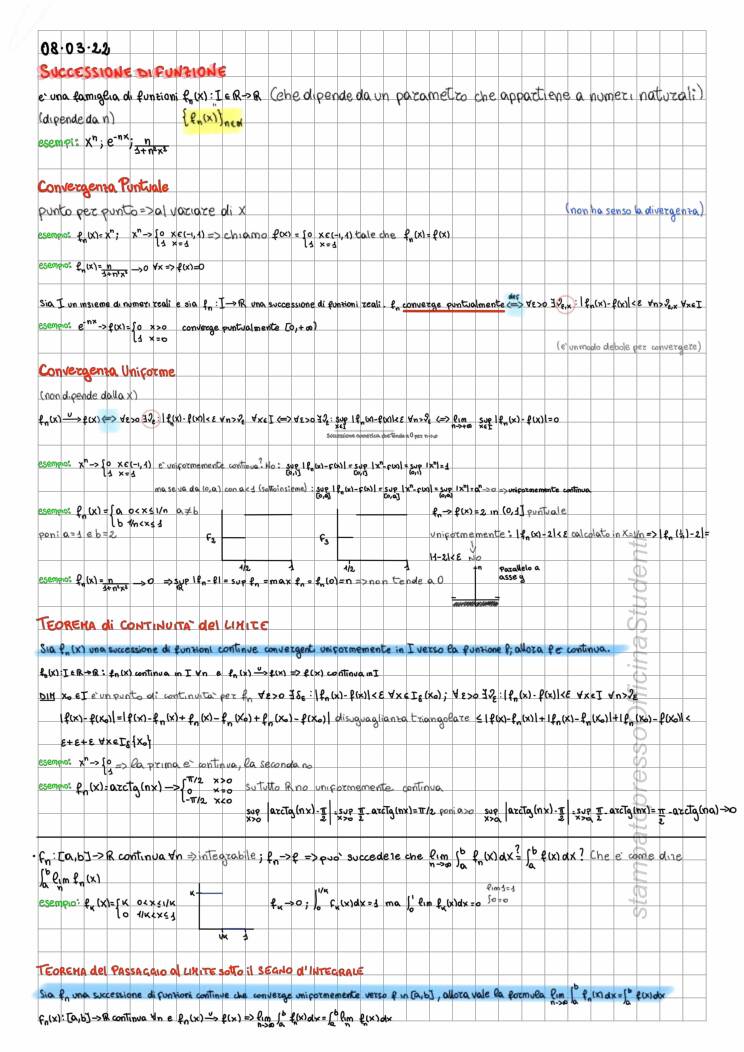 08.03.22
SUCCESSIONE DI FUNZIONE
è una famiglia di funzioni fₙ(x): I⊆R→R (che dipende da un parametro che appartiene a numeri naturali)
(dipende da n) {fₙ(x)}ₙ∈ℕ
esempi: xⁿ; e⁻ⁿˣ; n/(1+n²x²)
Convergenza Puntuale
punto per punto => al variare di x (non ha senso la divergenza)
esempio: fₙ(x)=xⁿ; xⁿ→{0 x∈(-1,1) 1 x=1 => chiamo f(x)={0 x∈(-1,1) 1 x=1 tale che fₙ(x)=f(x)
esempio: fₙ(x)=n/(1+n²x²) →0 ∀x => f(x)=0
Sia I un insieme di numeri reali e sia fₙ: I→R una successione di funzioni reali. fₙ converge puntualmente <=>def ∀ε>0 ∃νε,x: |fₙ(x)-f(x)|<ε ∀n>νε,x ∀x∈I
esempio: e⁻ⁿˣ→f(x)={0 x>0 1 x=0 converge puntualmente [0,+∞)
(è un modo debole per convergere)
Convergenza Uniforme
(non dipende dalla x)
fₙ(x) →ᵘ f(x) <=> ∀ε>0 ∃νε: |fₙ(x)-f(x)|<ε ∀n>νε ∀x∈I <=> ∀ε>0 ∃νε: sup x∈I |fₙ(x)-f(x)|<ε ∀n>νε <=> lim n→+∞ sup x∈I |fₙ(x)-f(x)|=0
Successione numerica che tende a 0 per n→∞
esempio: xⁿ→{0 x∈(-1,1) 1 x=1 è uniformemente continua? No: sup [0,1] |fₙ(x)-f(x)|=sup [0,1] |xⁿ-f(x)|=sup (0,1) |xⁿ|=1
ma se va da (0,a) con a<1 (sottoinsieme): sup [0,a] |fₙ(x)-f(x)|=sup [0,a] |xⁿ-f(x)|=sup (0,a) |xⁿ|=aⁿ→0 => uniformemente continua
esempio: fₙ(x)={a 0<x≤1/n a≠b b 1/n<x≤1 fₙ→f(x)=2 in (0,1] puntuale
poni a=1 e b=2 F₂ F₃ uniformemente: |fₙ(x)-2|<ε calcolato in x=1/n => |fₙ(1/n)-2|=
1/2 1 1/3 1 |1-2|<ε No
esempio: fₙ(x)=n/(1+n²x²) →0 => sup R |fₙ-f|=sup fₙ=max fₙ=fₙ(0)=n => non tende a 0 n Parallelo a
asse y
TEOREMA di CONTINUITA' del LIMITE
Sia fₙ(x) una successione di funzioni continue convergent uniformemente in I verso la funzione f; allora f è continua.
fₙ(x): I⊆R→R: fₙ(x) continua in I ∀n e fₙ(x) →ᵘ f(x) => f(x) continua in I
DIM x₀∈I è un punto di continuità per fₙ ∀ε>0 ∃δε: |fₙ(x)-f(x)|<ε ∀x∈Iδ(x₀); ∀ε>0 ∃νε: |fₙ(x)-f(x)|<ε ∀x∈I ∀n>νε
|f(x)-f(x₀)|=|f(x)-fₙ(x)+fₙ(x)-fₙ(x₀)+fₙ(x₀)-f(x₀)| disuguaglianza triangolare ≤|f(x)-fₙ(x)|+|fₙ(x)-fₙ(x₀)|+|fₙ(x₀)-f(x₀)|<
ε+ε+ε ∀x∈Iδ{x₀}
esempio: xⁿ→{0 1 => la prima è continua, la seconda no
esempio: fₙ(x)=arctg(nx)→{π/2 x>0 0 x=0 -π/2 x<0 su tutto R no uniformemente continua
sup x>0 |arctg(nx)-π/2|=sup x>0 π/2-arctg(nx)=π/2 poni a>0 sup x>a |arctg(nx)-π/2|=sup x>a π/2-arctg(nx)=π/2-arctg(na)→0
• fₙ:[a,b]→R continua ∀n => integrabile; fₙ→f => può succedere che lim n→∞ ∫ₐᵇ fₙ(x)dx ?= ∫ₐᵇ f(x)dx? Che è come dire
∫ₐᵇ lim n fₙ(x)
esempio: fₖ(x)={K 0<x≤1/K 0 1/K<x≤1 K 1/K 1 fₖ→0; ∫₀^1/K fₖ(x)dx=1 ma ∫₀¹ lim fₖ(x)dx=0 lim 1=1
∫0=0
TEOREMA del PASSAGGIO al LIMITE sotto il SEGNO d'INTEGRALE
Sia fₙ una successione di funzioni continue che converge uniformemente verso f in [a,b], allora vale la formula lim n→∞ ∫ₐᵇ fₙ(x)dx=∫ₐᵇ f(x)dx
fₙ(x):[a,b]→R continua ∀n e fₙ(x) →ᵘ f(x) => lim n→∞ ∫ₐᵇ fₙ(x)dx=∫ₐᵇ lim n fₙ(x)dx
stampatopressoOfficinaStudenti